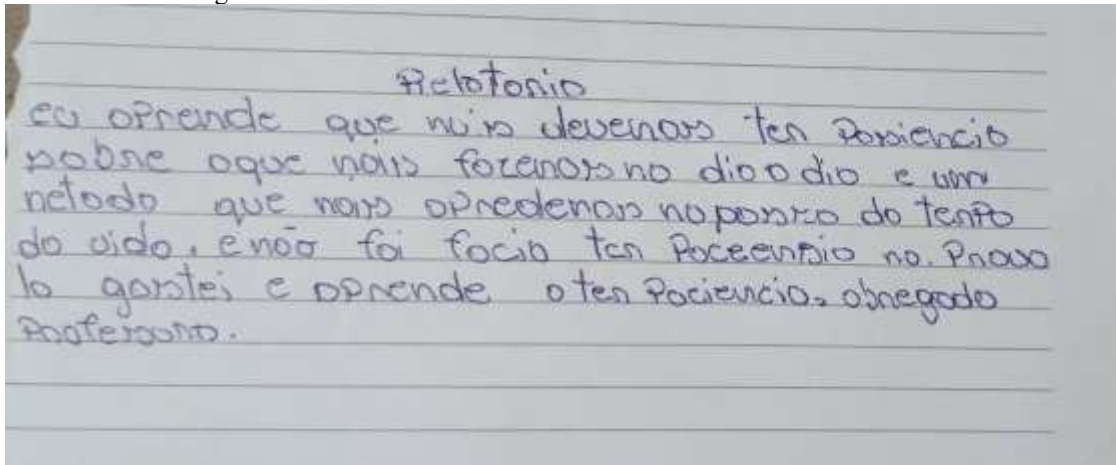 Relatorio
eu aprende que nois devemos ter pasiencia
sobre oque nois fazemos no dia a dia e um
metodo que nois apredemos no passo do tempo
da vida. e não foi facio ter Paceencia na. Prova
la gostei e aprende a ter Paciencia. obregado
Professora.